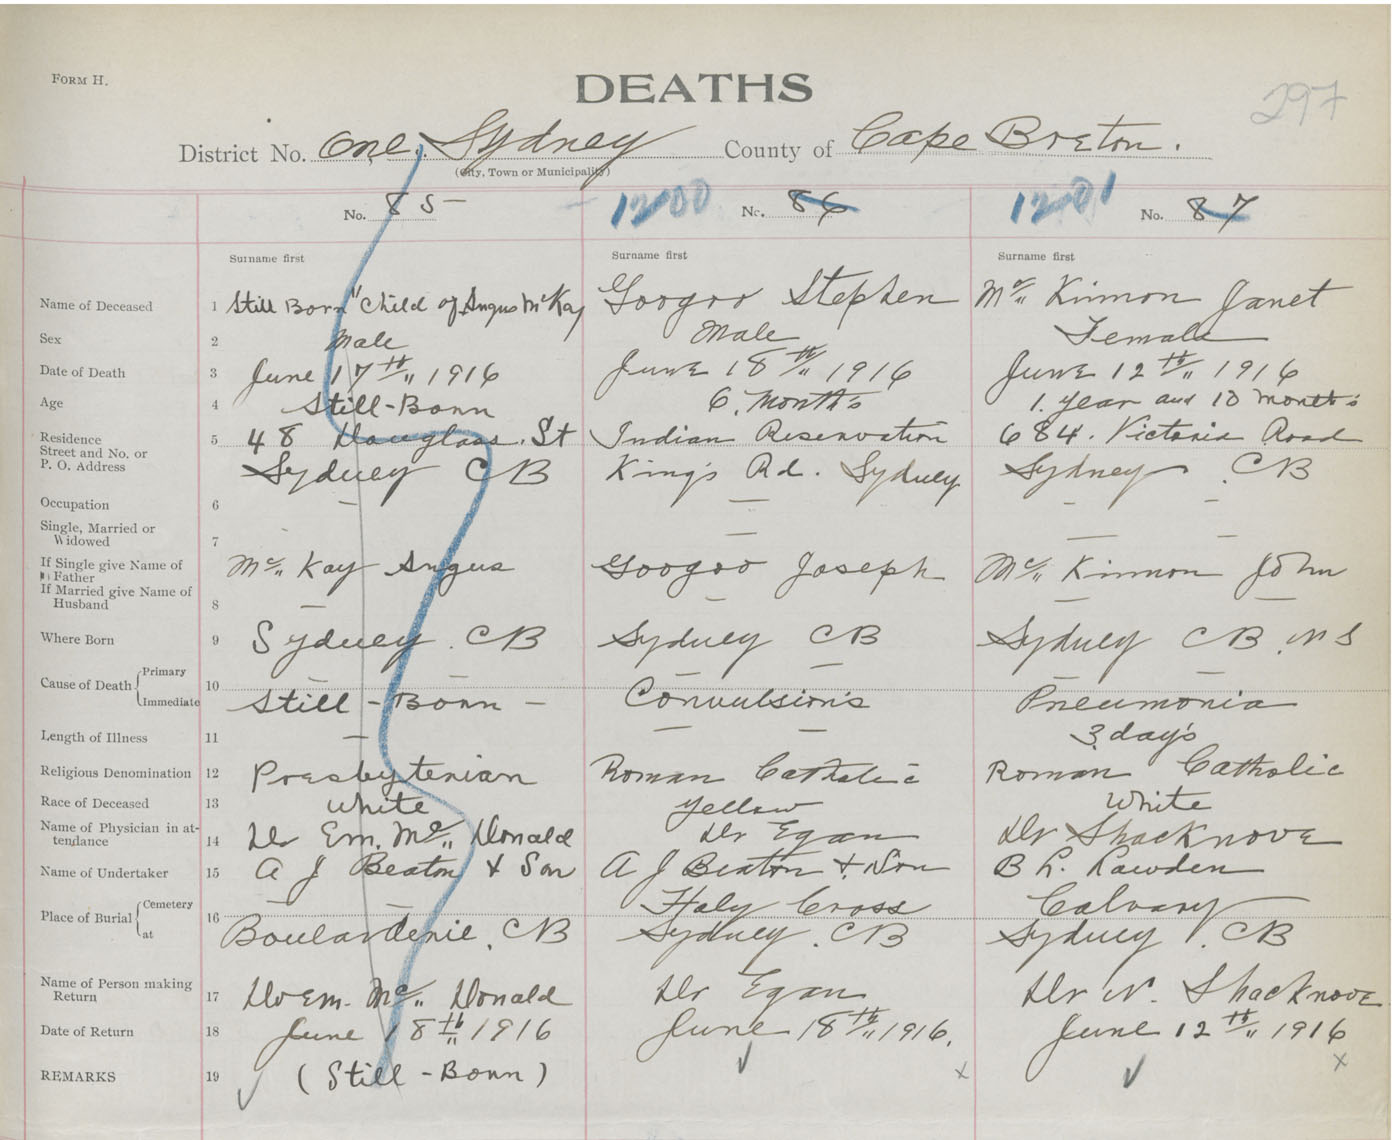 FORM H.
DEATHS
297
District No. One. Sydney County of Cape Breton.
(City, Town or Municipality)
No. 85 1200 No. 86 1201 No. 87
Surname first Surname first Surname first
Name of Deceased 1 Still Born" Child of Angus McKay Googoo Stephen Mc" Kinnon Janet
Sex 2 Male Male Female
Date of Death 3 June 17th" 1916 June 18th" 1916 June 12th" 1916
Age 4 Still-Born 6. Months 1. year and 10 months
Residence 5 48 Douglass. St Indian Reservation 684. Victoria Road
Street and No. or
P. O. Address Sydney CB King's Rd. Sydney Sydney CB
Occupation 6 — — — -
Single, Married or
Widowed 7 - — — -
If Single give Name of
Father Mc" Kay Angus Googoo Joseph Mc" Kinnon John
If Married give Name of
Husband 8 — — — —
Where Born 9 Sydney. CB Sydney CB Sydney CB. NS
Cause of Death Primary 10 — — — — —
Immediate Still - Born - Convulsion's Pneumonia
Length of Illness 11 — — — 3 day's
Religious Denomination 12 Presbyterian Roman Catholic Roman Catholic
Race of Deceased 13 White Yellow White
Name of Physician in at-
tendance 14 Dr Em. Mc" Donald Dr Egan Dr Shacknove
Name of Undertaker 15 A J Beaton & Son A J Beaton & Son B L. Lawden
Place of Burial Cemetery 16 — — Holy Cross Calvary
at Boulardenie, CB Sydney. CB Sydney. CB
Name of Person making
Return 17 Dr Em. Mc" Donald Dr Egan Dr N. Shacknove
Date of Return 18 June 18th" 1916 June 18th" 1916. June 12th" 1916
REMARKS 19 (Still-Born) x x